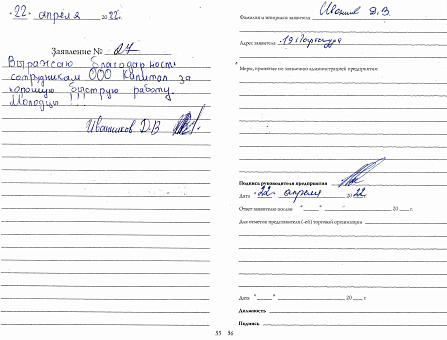 "22" апреля 2022г.
Заявление № 27
Выражаю благодарность
сотрудникам ООО Капитал за
хорошую быструю работу.
Молодцы !!!
Иванников Д.В
Фамилия и инициалы заявителя Д.В.
Адрес заявителя
Меры, принятые по заявлению администрацией предприятия:
Подпись руководителя предприятия
Дата "22" апреля 2022г.
Ответ заявителю послан "___" ______ 20__ г.
Для отметок представителя (-ей) торговой организации
Дата "___" ______ 20__ г.
Должность
Подпись
35 36